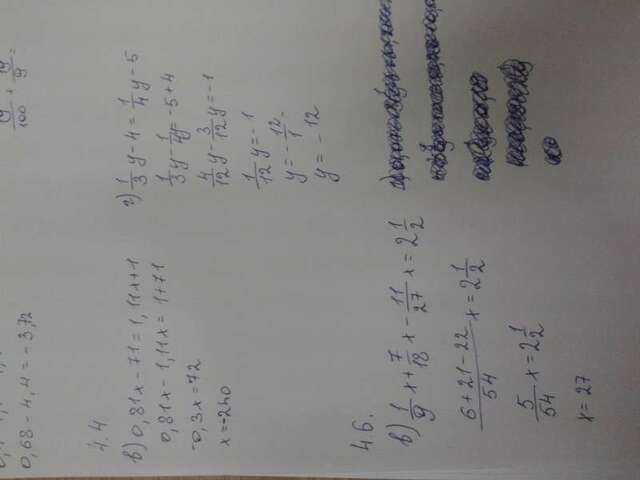 0,68 - 4,4 = -3,72
4.4
в) 0,81x - 71 = 1,11x + 1
0,81x - 1,11x = 1 + 71
-0,3x = 72
x = -240
г) 1/3 y - 4 = 1/4 y - 5
1/3 y - 1/4 y = -5 + 4
4/12 y - 3/12 y = -1
1/12 y = -1
y = - 12/1
y = -12
4.6.
в) 1/9 x + 7/18 x - 11/27 x = 2 1/2
(6 + 21 - 22)/54 x = 2 1/2
5/54 x = 2 1/2
x = 27